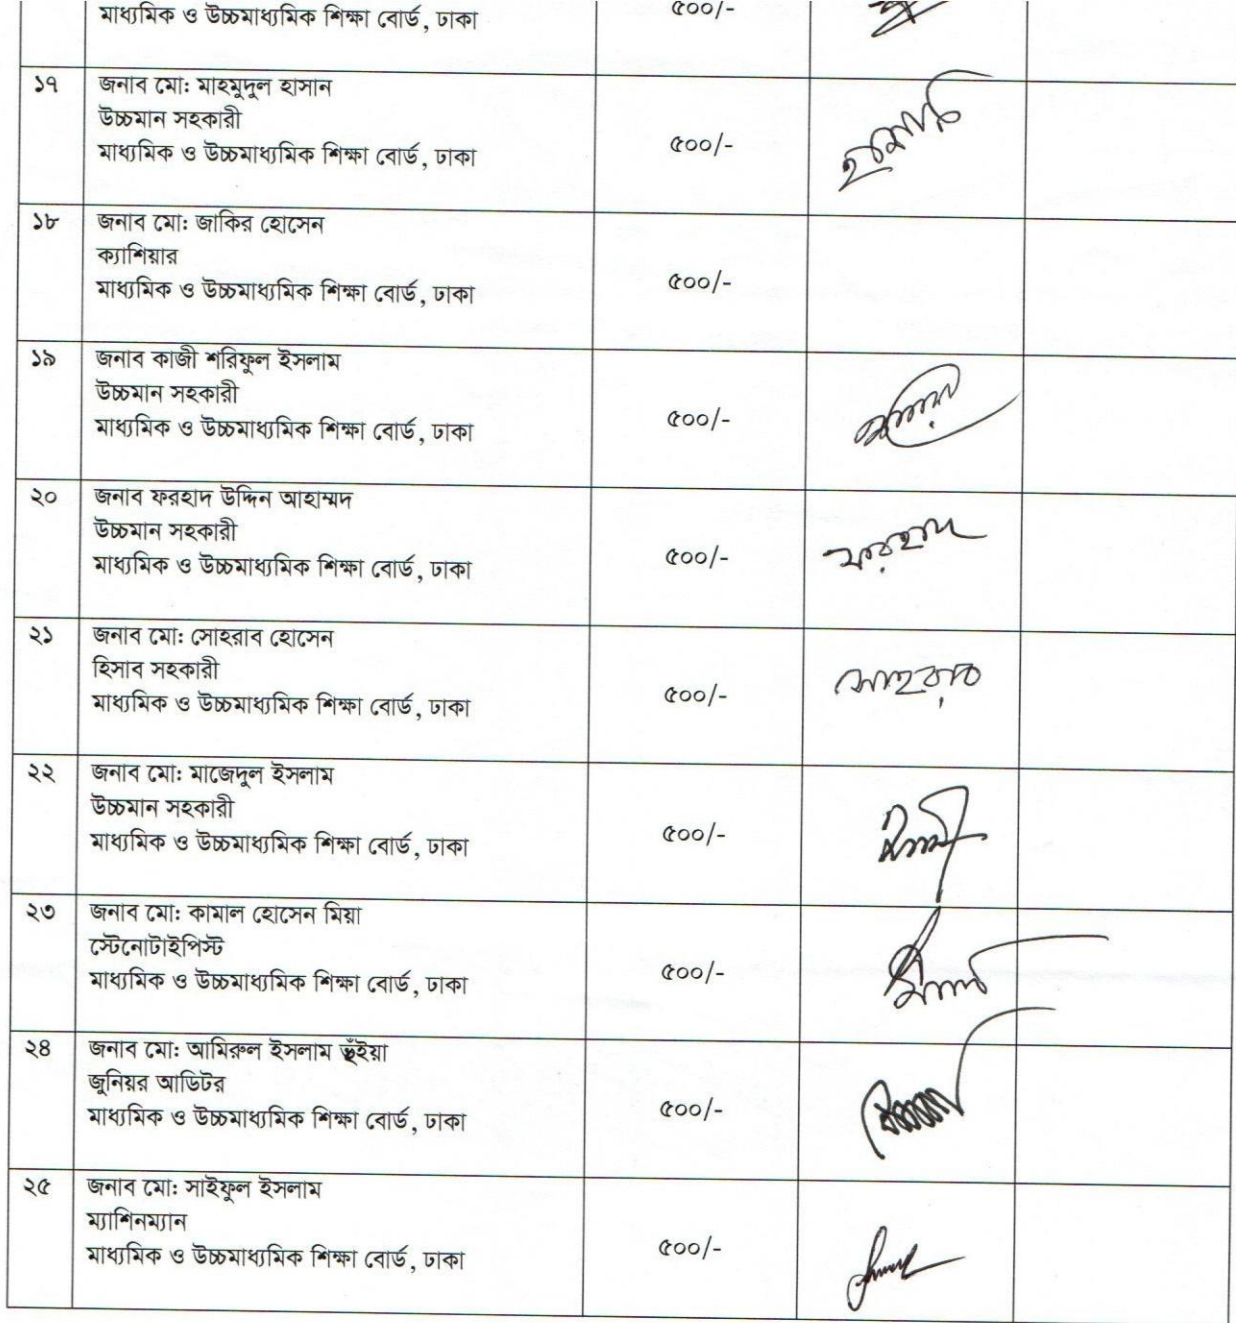 মাধ্যমিক ও উচ্চমাধ্যমিক শিক্ষা বোর্ড, ঢাকা ৫০০/-
১৭ জনাব মো: মাহমুদুল হাসান
উচ্চমান সহকারী
মাধ্যমিক ও উচ্চমাধ্যমিক শিক্ষা বোর্ড, ঢাকা ৫০০/-
১৮ জনাব মো: জাকির হোসেন
ক্যাশিয়ার
মাধ্যমিক ও উচ্চমাধ্যমিক শিক্ষা বোর্ড, ঢাকা ৫০০/-
১৯ জনাব কাজী শরিফুল ইসলাম
উচ্চমান সহকারী
মাধ্যমিক ও উচ্চমাধ্যমিক শিক্ষা বোর্ড, ঢাকা ৫০০/-
২০ জনাব ফরহাদ উদ্দিন আহাম্মদ
উচ্চমান সহকারী
মাধ্যমিক ও উচ্চমাধ্যমিক শিক্ষা বোর্ড, ঢাকা ৫০০/- ফরহাদ
২১ জনাব মো: সোহরাব হোসেন
হিসাব সহকারী
মাধ্যমিক ও উচ্চমাধ্যমিক শিক্ষা বোর্ড, ঢাকা ৫০০/- সোহরাব
২২ জনাব মো: মাজেদুল ইসলাম
উচ্চমান সহকারী
মাধ্যমিক ও উচ্চমাধ্যমিক শিক্ষা বোর্ড, ঢাকা ৫০০/-
২৩ জনাব মো: কামাল হোসেন মিয়া
স্টেনোটাইপিস্ট
মাধ্যমিক ও উচ্চমাধ্যমিক শিক্ষা বোর্ড, ঢাকা ৫০০/-
২৪ জনাব মো: আমিরুল ইসলাম ভূঁইয়া
জুনিয়র আডিটর
মাধ্যমিক ও উচ্চমাধ্যমিক শিক্ষা বোর্ড, ঢাকা ৫০০/-
২৫ জনাব মো: সাইফুল ইসলাম
ম্যাশিনম্যান
মাধ্যমিক ও উচ্চমাধ্যমিক শিক্ষা বোর্ড, ঢাকা ৫০০/-